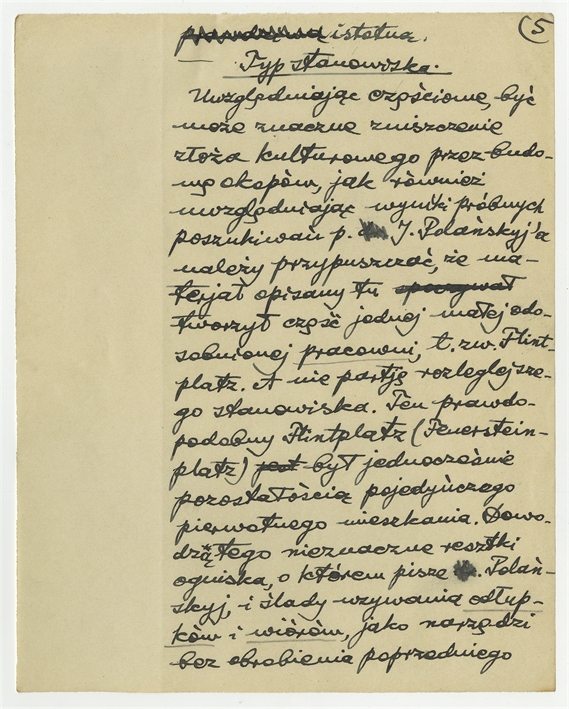 (5
istotną.
Typ stanowiska.
Uwzględniając częściowe, być
może znaczne zniszczenie
złoża kulturowego przez budo-
wę okopów, jak również
uwzględniając wyniki próbnych
poszukiwań p. J. Polańskyj'a
należy przypuszczać, że ma-
terjał opisany tu
tworzył część jednej małej odo-
sobnionej pracowni, t. zw. Flint-
platz. A nie partję rozleglejsze-
go stanowiska. Ten prawdo-
podobny Flintplatz (Feuerstein-
platz) jest był jednocześnie
pozostałością pojedyńczego
pierwotnego mieszkania. Dowo-
dzą tego nieznaczne resztki
ogniska, o którem pisze Polań-
skyj, i ślady używania odłup-
ków i wiórów, jako narzędzi
bez obrobienia poprzedniego